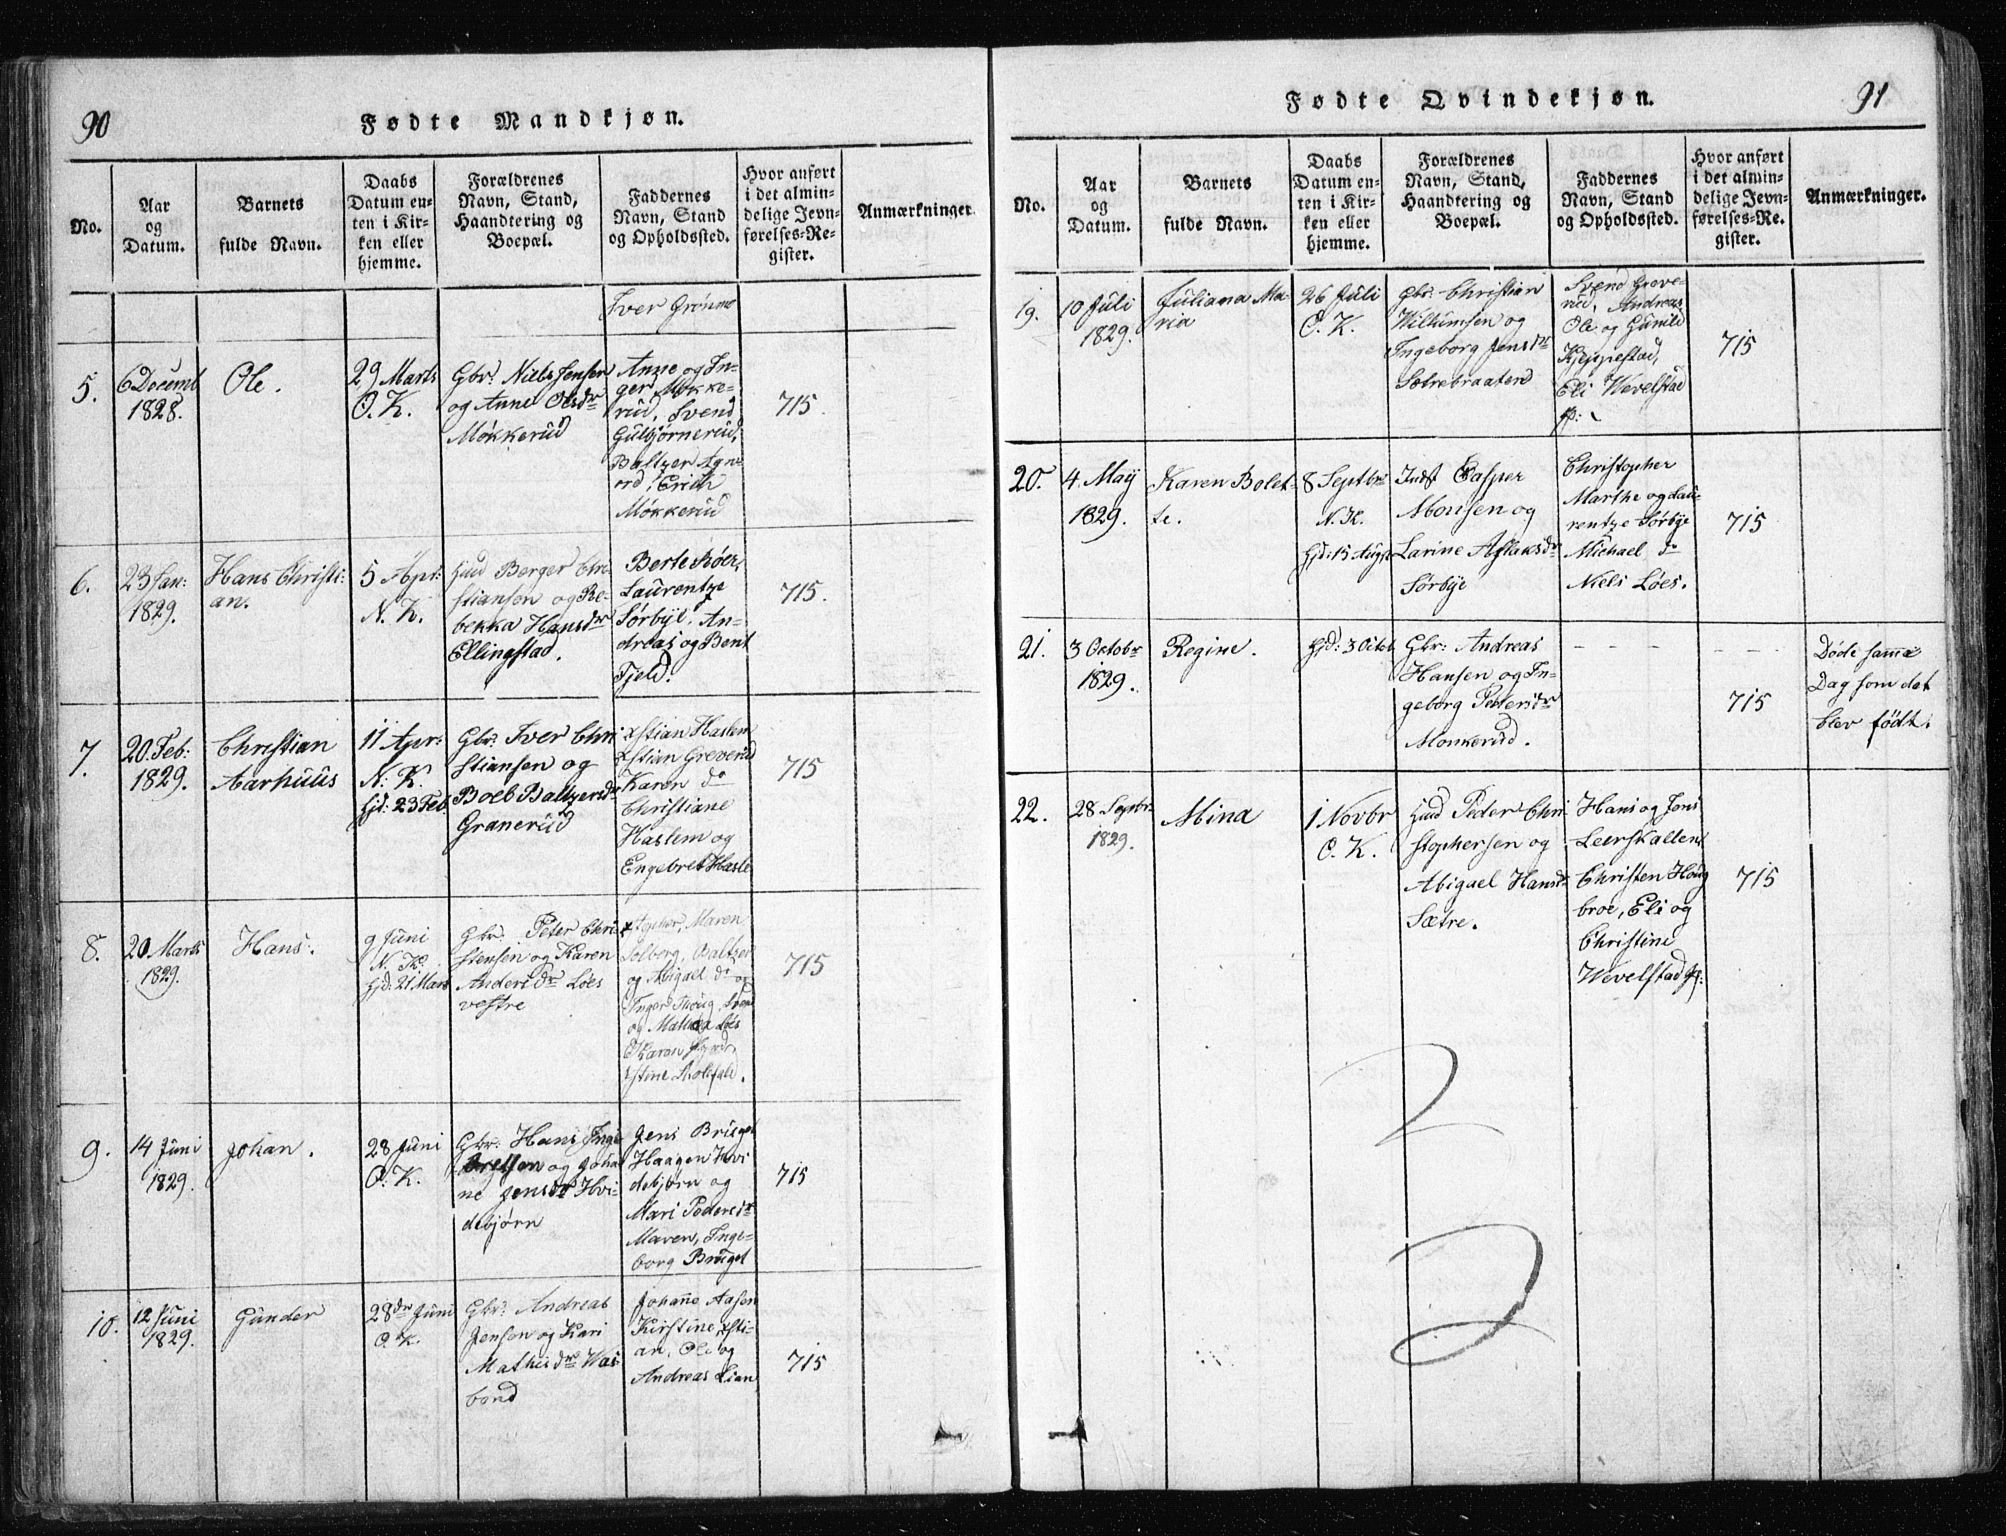 90
Fødte Mandkjøn.
No.
Aar
og
Datum.
Barnets
fulde Navn.
Daabs
Datum en-
ten i Kir-
ken eller
hjemme.
Forældrenes
Navn, Stand,
Haandtering og
Boepæl.
Faddernes
Navn, Stand
og Opholdssted.
Hvor anført
i det almin-
delige Jevn-
førelses-Re-
gister.
Anmærkninger.
Iver Grönmo
5.
6 Decemb
1828.
Ole.
29 Marts
O. K.
Gbr: Niels Jensen
og Anne Olsdr
Møkkerud
Anne og In-
ger Mokke-
rud, Svend
Gulbjørnerud,
Baltzer Agne
rd, Erich
Møkkerud
715
6.
23 Jan:
1829.
Hans Christi:
an.
5 Apr:
N. K.
Huusmd Berger Chri
stiansen og Re-
bekka Hansdr
Ellingstad.
Berte Skøer,
Laurentze
Sørbye, An-
dreas og Bent
Fjeld.
715.
7.
20 Feb:
1829.
Christian
Aarhuus
11 Apr:
N. K.
Hjd: 23 Feb.
Gbr: Iver Chri
stiansen og
Boel Baltzersdr
Granerud
xstian Haslem
xstian Greverud
Karen do
Christiane
Haslem og
Engebret Hasle
715
8.
20 Marts
1829.
Hans.
9 Juni
N. K.
Hjd: 21 Marts
Gbr. Peter Chri
stensen og Karen
Andersdr Løes
vestre
xstopher, Maren
Solberg, Baltzer
og Abigael do og
Inger
og Mathea Løes
Karen
xstine
715
9.
14 Juni
1829.
Johan.
28 Juni
O. K.
Gbr: Hans Inge
bretsen og Joha
ne Jensdr Hvi-
debjørn
Jens Bruget
Haagen Hvi
debjørn og
Mari Pedersdr
Maren, Inge-
borg Bruget
715
10.
12 Juni
1829.
Gunder
28de Juni
O. K.
Gbr: Andreas
Jensen og Kari
Mathisdr Was
bond
Johanne Aasen
Kirstine, xsti-
an, Ole og
Andreas Lian
715
91
Fødte Qvindekjøn.
No.
Aar
og
Datum.
Barnets
fulde Navn.
Daabs
Datum en-
ten i Kir-
ken eller
hjemme.
Forældrenes
Navn, Stand,
Haandtering og
Boepæl.
Faddernes
Navn, Stand
og Opholdssted.
Hvor anført
i det almin-
delige Jevn-
førelses-Re-
gister.
Anmærkninger.
19.
10 Juli
1829.
Juliana Ma-
ria
26 Juli
O. K.
Gbr. Christian
Willumsen og
Ingeborg Jensdr
Sætrebraaten
Svend Greve-
rud, Andreas,
Ole og Gunild
Kjeppestad,
Eli Wevelstad
p:
715
20.
4 May
1829.
Karen Bolet-
te.
8 Septbr
N. K.
Hjd: 15 Augst
Indst Casper
Monsen og
Larine Aslaksdr
Sørbye
Christopher
Marthe og Lau-
rentze Sørbye
Michael do
Niels Løes.
715
21.
3 Octobr
1829.
Regine.
Hjd: 3 Octob
Gbr: Andreas
Hansen og In-
geborg Pedersdr
Monkerud.
- - - -
- - -
715
Døde samme
Dag som det
blev født.
22.
28 Septbr
1829.
Mina
1 Novbr
O. K.
Huusmd Peder Chri
stophersen og
Abigael Hansdr
Sætre.
Hans og Jens
Leerskallen
Christen Houg
broe, Eli og
Christine
Wevelstad p:
715